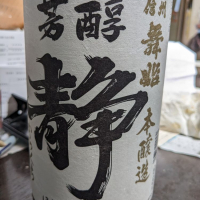 信州
舞姫
本醸造
芳醇
静